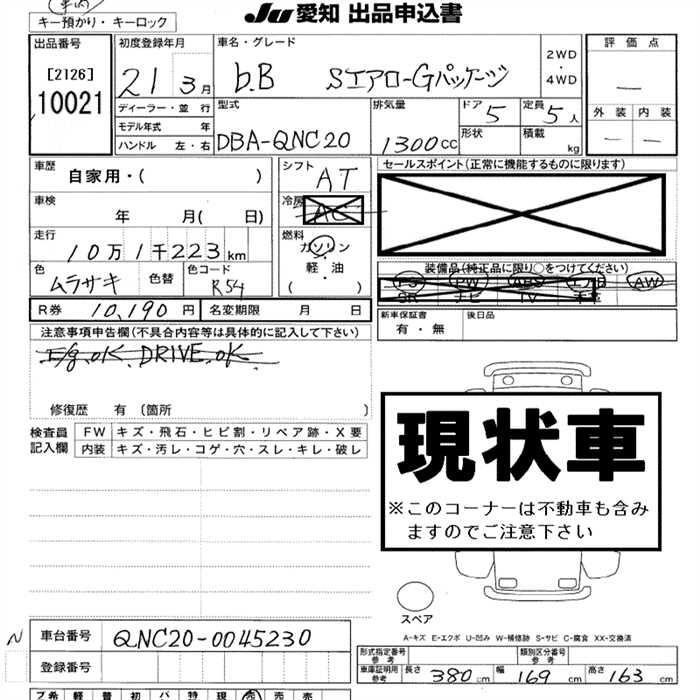 JU 愛知 出品申込書
車内
キー預かり・ キーロック
出品番号 初度登録年月 車名・グレード 2WD ・ 4WD 評 価 点
[2126] 10021 21 3 月 b.B SエアローGパッケージ —
ディーラー・並 行 型式 排気量 ドア 5 定員 5 人 外 装 内 装
モデル年式 年 DBA-QNC20 1300 CC 形状 積載 kg — —
ハンドル 左・右
車歴 自家用・( ) シフト AT セールスポイント(正常に機能するものに限ります)
車検 年 月( 日) 冷房 AC
走行 10万1千223 km 燃料 ガソリン 軽・油 ( )
色 ムラサキ 色替 色コード R54 装備品(純正品に限り○をつけてください)
PS PW ABS エアB AW
SR ナビ TV 本革
R券 10,190 円 名変期限 月 日 新車保証書 有・無 後日品
注意事項申告欄(不具合内容等は具体的に記入して下さい)
E/g.OK. DRIVE.OK
修復歴 有 〔箇所 〕
検査員 記入欄 FW キズ・飛石・ヒビ割・リペア跡・X要
内装 キズ・汚レ・コゲ・穴・スレ・キレ・破レ
現状車
※このコーナーは不動車も含み
ますのでご注意下さい
スペア
A-キズ E-エクボ U-凹み W-補修跡 S-サビ C-腐食 XX-交換済
N 車台番号 QNC20-0045230
登録番号
形式指定番号 参考 類別区分番号 参考
車庫証明用 参考 長さ 380 cm 幅 169 cm 高さ 163 cm